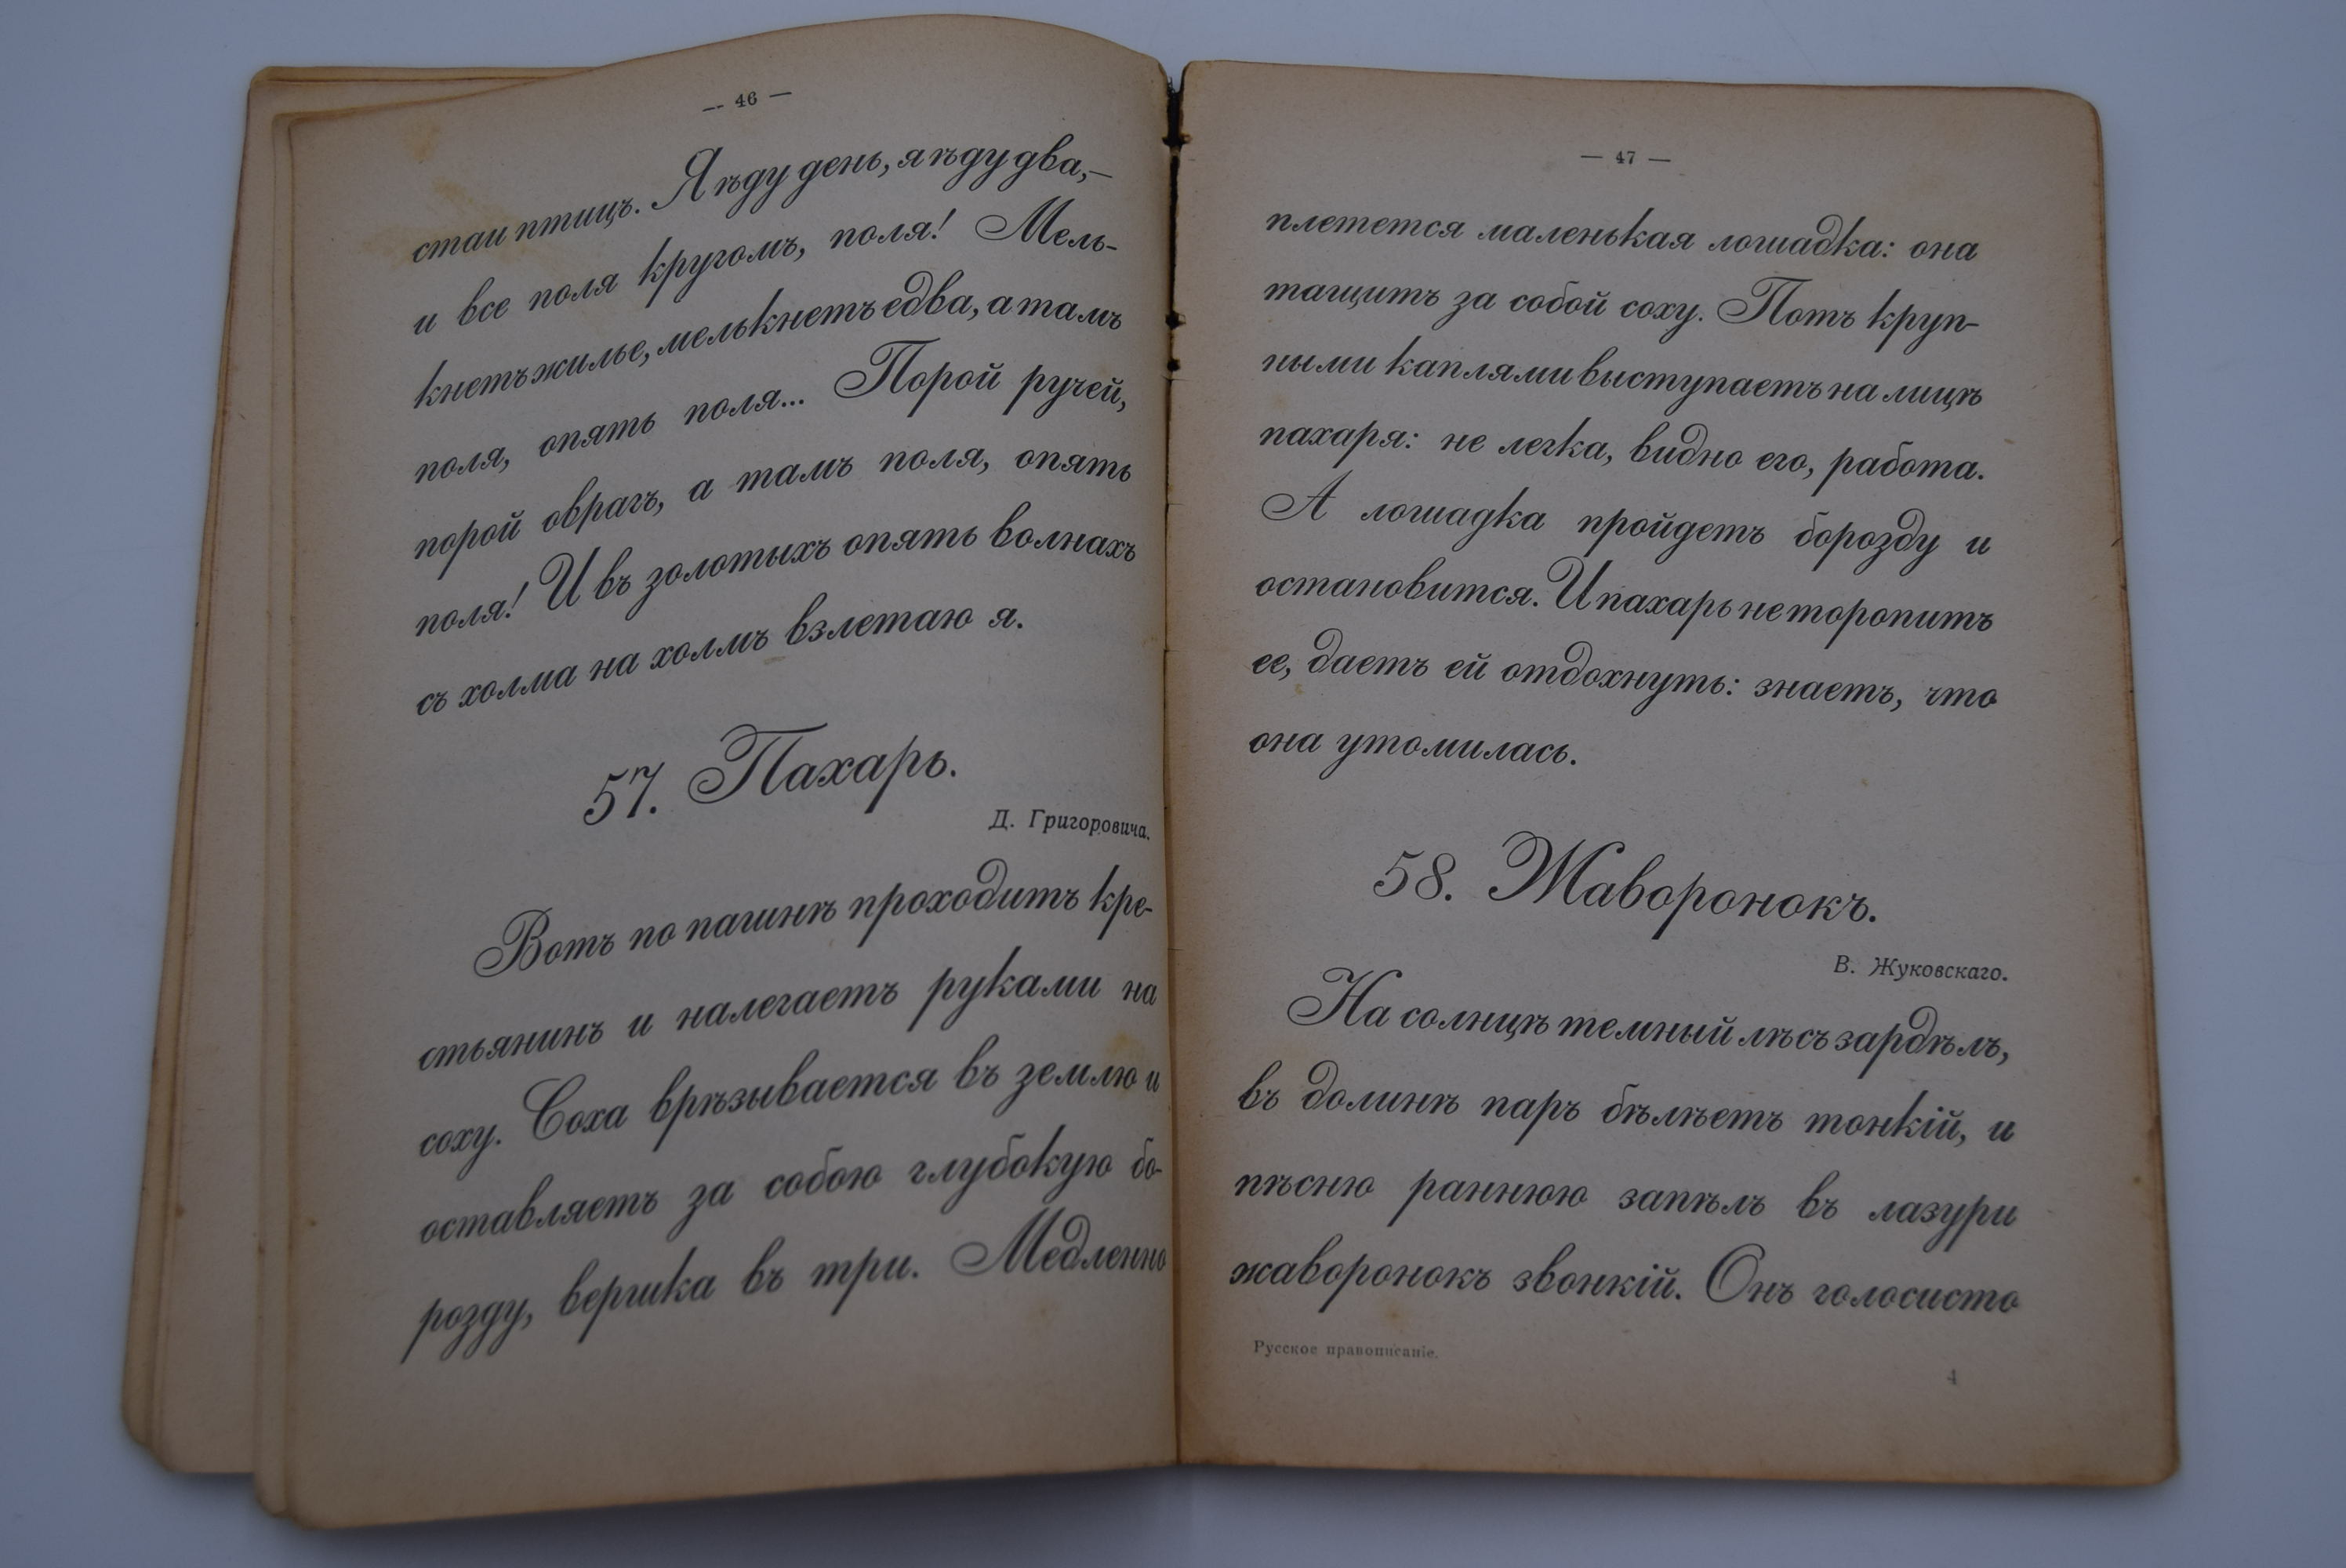 — 46 —
стаи птицъ. Я ѣду день, я ѣду два,—
и все поля кругомъ, поля! Мель-
кнетъ жилье, мелькнетъ едва, а тамъ
поля, опять поля... Порой ручей,
порой оврагъ, а тамъ поля, опять
поля! И въ золотыхъ опять волнахъ
съ холма на холмъ взлетаю я.
57. Пахарь.
Д. Григоровича.
Вотъ по пашнѣ проходитъ кре-
стьянинъ и налегаетъ руками на
соху. Соха врѣзывается въ землю и
оставляетъ за собою глубокую бо-
розду, вершка въ три. Медленно
— 47 —
плетется маленькая лошадка: она
тащитъ за собой соху. Потъ круп-
ными каплями выступаетъ на лицѣ
пахаря: не легка, видно его, работа.
А лошадка пройдетъ борозду и
остановится. И пахарь не торопитъ
ее, даетъ ей отдохнуть: знаетъ, что
она утомилась.
58. Жаворонокъ.
В. Жуковскаго.
На солнцѣ темный лѣсъ зардѣлъ,
въ долинѣ паръ бѣлѣетъ тонкій, и
пѣсню раннюю запѣлъ въ лазури
жаворонокъ звонкій. Онъ голосисто
Русское правописаніе.
4